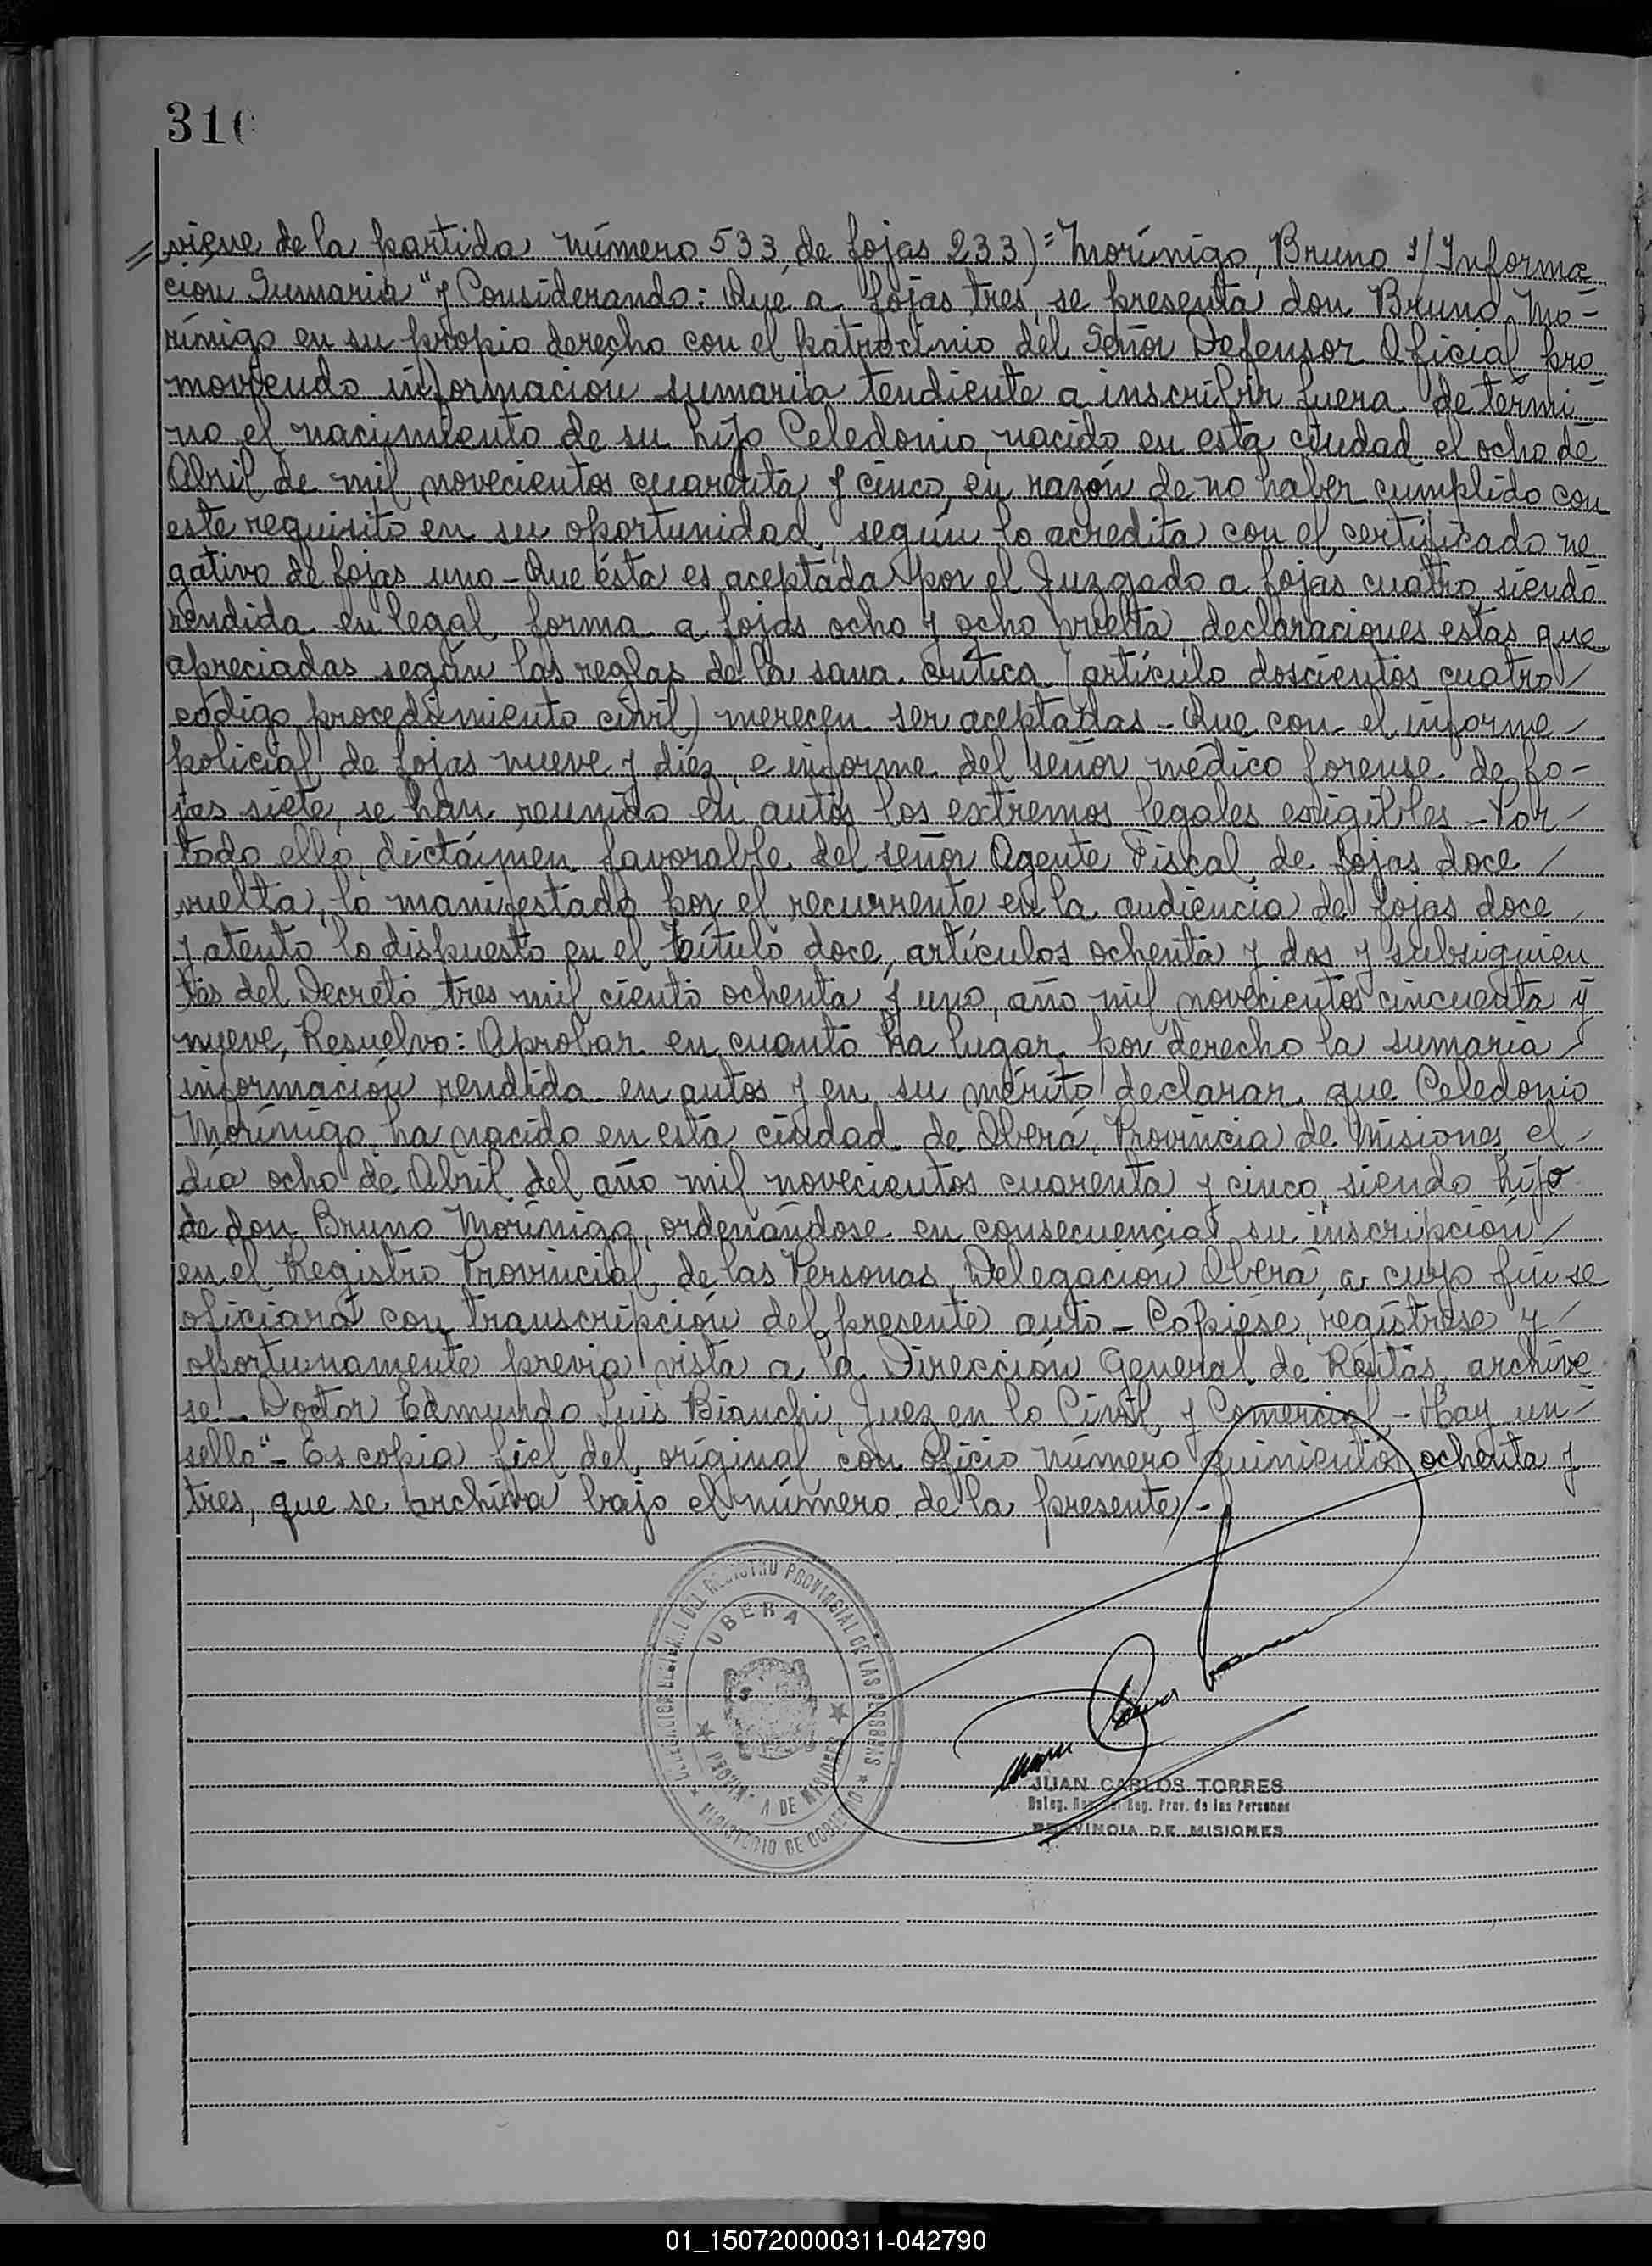 310
= viene de la partida número 533, de fojas 233) = Morínigo, Bruno s/ Informa
ción Sumaria" y Considerando: Que a fojas tres, se presenta don Bruno Mo-
rínigo en su propio derecho con el patrocinio del Señor Defensor Oficial pro
moviendo información sumaria tendiente a inscribir fuera de térmi-
no el nacimiento de su hijo Celedonio, nacido en esta ciudad el ocho de
Abril de mil novecientos cuarenta y cinco, en razón de no haber cumplido con
este requisito en su oportunidad, según lo acredita con el certificado ne
gativo de fojas uno - Que ésta es aceptada por el Juzgado a fojas cuatro siendo
rendida en legal forma a fojas ocho y ocho vuelta declaraciones estas que
apreciadas según las reglas de la sana crítica (artículo doscientos cuatro /
código procedimiento civil) merecen ser aceptadas - Que con el informe -
policial de fojas nueve y diez, e informe del señor médico forense de fo-
jas siete, se han reunido en autos los extremos legales exigibles - Por -
todo ello, dictámen favorable del señor Agente Fiscal de fojas doce /
vuelta, lo manifestado por el recurrente en la audiencia de fojas doce
y atento lo dispuesto en el título doce, artículos ochenta y dos y subsiguien
tes del Decreto tres mil ciento ochenta y uno, año mil novecientos cincuenta y
nueve, Resuelvo: Aprobar en cuanto ha lugar por derecho la sumaria /
información rendida en autos y en su mérito declarar que Celedonio
Morínigo ha nacido en esta ciudad de Oberá, Provincia de Misiones el -
día ocho de Abril del año mil novecientos cuarenta y cinco, siendo hijo
de don Bruno Morínigo, ordenándose en consecuencia su inscripción /
en el Registro Provincial de las Personas, Delegación Oberá, a cuyo fin se
oficiará con transcripción del presente auto - Cópiese, regístrese y /
oportunamente previa vista a la Dirección General de Rentas, archíve
se - Doctor Edmundo Luis Bianchi, Juez en lo Civil y Comercial - Hay un -
sello" - Es copia fiel del original con oficio número quinientos ochenta y
tres, que se archiva bajo el número de la presente -
REGISTRO PROVINCIAL DE LAS PERSONAS
OBERA
PROVINCIA DE MISIONES
MINISTERIO DE GOBIERNO
JUAN CARLOS TORRES
Deleg. Reg. Prov. de las Personas
PROVINCIA DE MISIONES
01_150720000311-042790